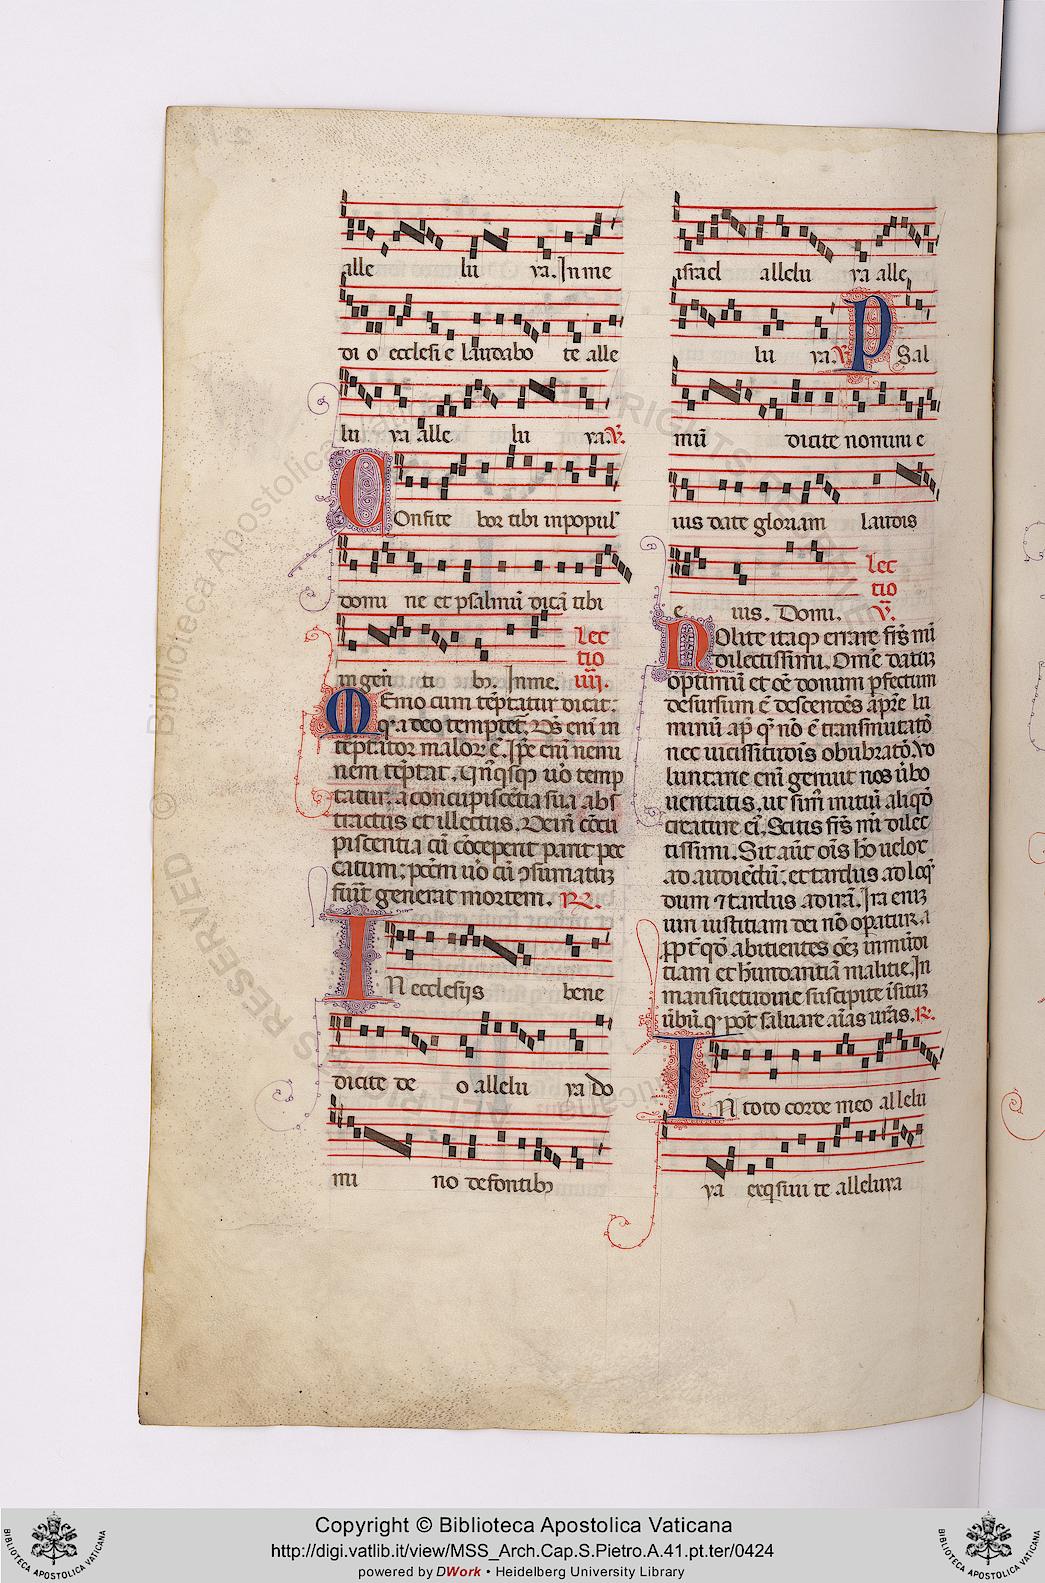 alle lu ya. In me
di o ecclesi e laudabo te alle
lu ya alle lu ya. V.
Confite bor tibi in popul'
domi ne et psalmū dicā tibi
in gen ti bꝫ. In me.
Lec
tio
iiii.
Nemo cum tēptatur dicat:
qꝛ a deo temptet̄. Ds̄ eni in
tēptator maloꝝ ē. Ip̄e eni nemi
nem tēptat. Unꝰqͥsqꝫ uo temp
tatur. a concupiscētia sua abs
tractus et illectus. Dein cōcu
piscentia cū cōceperit parit pec
catum; pccm uo cū ꝯsumatuꝫ
fuit generat mortem. R.
In ecclesijs bene
dicite de o allelu ya do
mi no de fontibꝫ
israel allelu ya alle
lu ya. V. Psal
mū dicite nomini e
ius date gloriam laudis
e ius. Domi.
Lec
tio
V.
Nolite itaqꝫ errare frs̄ mi
dilectissimi. Om̄e datuꝫ
optimū et oē donum pfectum
desursum ē descendēs a pr̄e lu
minū apd qͦ nō ē transmutatō
nec uicissitudis obumbratō. Uo
luntarie eni genuit nos ūbo
ueritatis. ut sim initiū aliqd
creature ei. Scitis frs̄ mi dilec
tissimi. Sit aūt ois hō uelox
ad audiēdū. et tardus ad loqͣ
dum ⁊ tardus ad irā. Ira eni
uiri iustitiam dei nō opatur.
ꝓpt qd abicientes oēꝫ inmūdi
tiam et habundantiā malitie. In
mansuetudine suscipite īsituꝫ
ūbū qd pot̄ saluare aīas uras. R.
In toto corde meo allelu
ya exqsiui te alleluya
Copyright © Biblioteca Apostolica Vaticana
http://digi.vatlib.it/view/MSS_Arch.Cap.S.Pietro.A.41.pt.ter/0424
powered by DWork • Heidelberg University Library